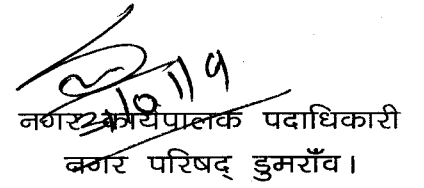 नगर कार्यपालक पदाधिकारी
नगर परिषद् डुमराँव।